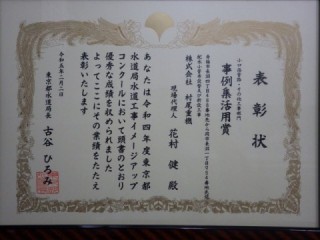 表彰状
事例集活用賞
株式会社 村尾重機
現場代理人 花村 健 殿
あなたは令和四年度東京都
水道局水道工事イメージアップ
コンクールにおいて頭書のとおり
優秀な成績を収められました
よってここにその業績をたたえ
表彰いたします
令和五年二月二日
東京都水道局長
古谷 ひろみ